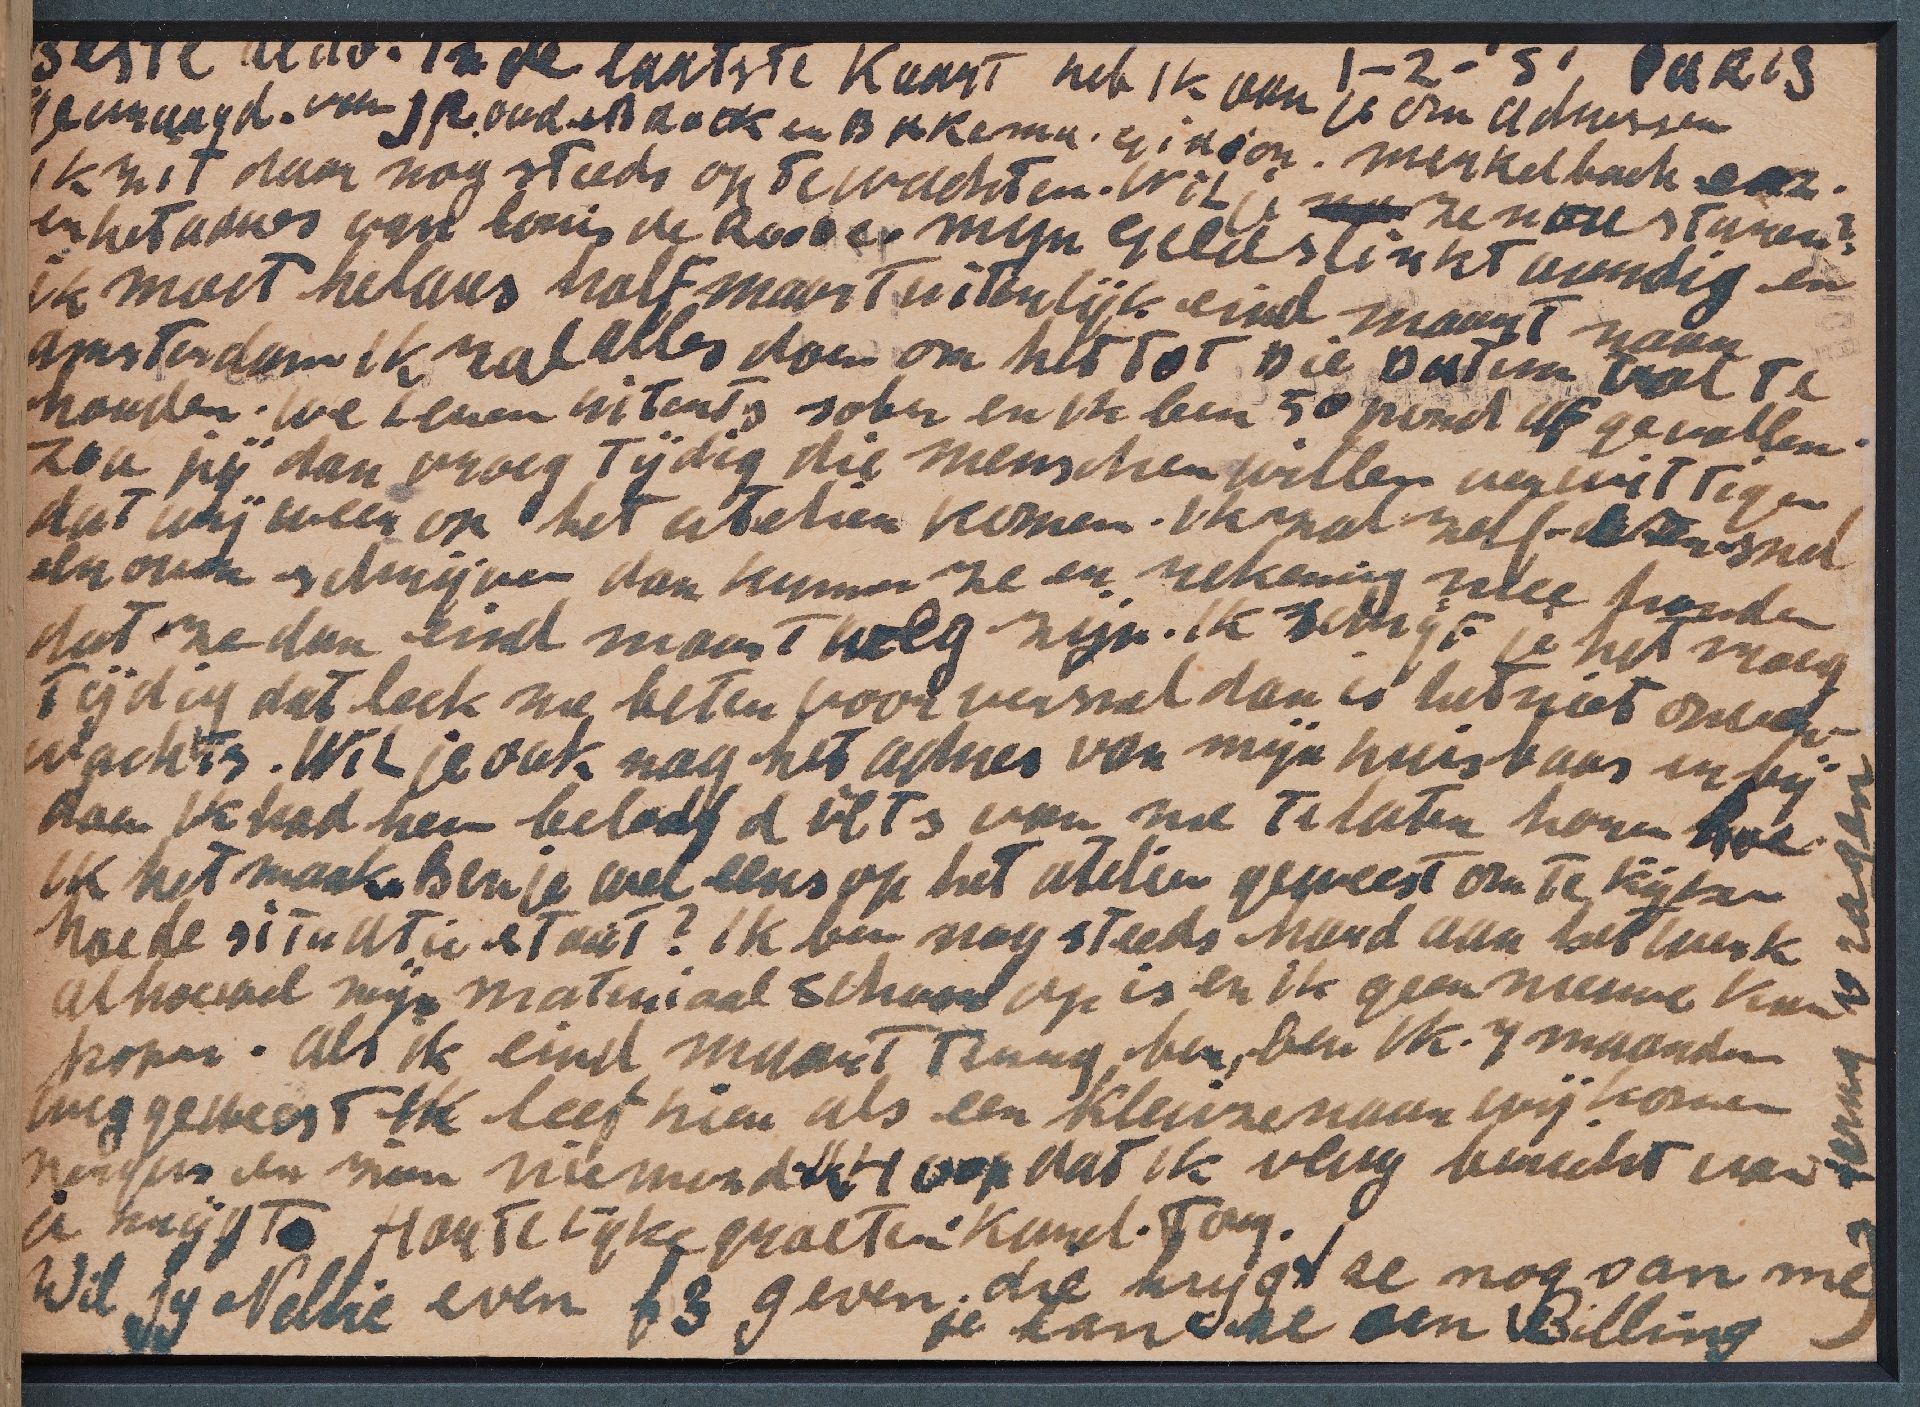 Beste Aldo. In de laatste kaart heb ik van je om adressen 1-2-'51 PARIS
gevraagd. van J P. oud. en Bakema. . merkelbach enz.
ik zit daar nog steeds op te wachten. Wil je ze nou sturen?
en het adres van louis de mijn geld slinkt en
ik moet helaas half maart uiterlijk eind maart naar
amsterdam ik zal alles doen om het tot die datum vol te
houden. we leven uiterts sober en ik ben 50 pond af gevallen.
zou jij dan vroeg tijdig die menschen willen verwittigen
dat wij weer op het atelier komen. Ik zal zelf snel
er over schrijven dan kunnen ze er rekening mee houden
dat ze dan eind maart weg zijn. Ik schrijf je het vroeg
tijdig dat leek me beter voor dan is het niet onver-
wachts. Wil je ook nog het adres van mijn huisbaas er bij
doen ik had hem beloofd iets van me te laten horen hoe
ik het maak. Ben je wel eens op het atelier geweest om te kijken
hoe de situatie staat? Ik ben nog steeds hard aan het werk
alhoewel mijn materiaal schoon op is en ik geen nieuwe kan
kopen. als ik eind maart terug ben, ben ik. 7 maanden
weg geweest ik leef hier als een kleuzenaar wij komen
nergens en zien niemand ik hoop dat ik vlug bericht van
je krijgt. Hartelijke groeten Karel. Tony.
Wil jy Nellie even f3 geven. die krijgt ze nog van me
je kan ze aen Billing
terug v zagen